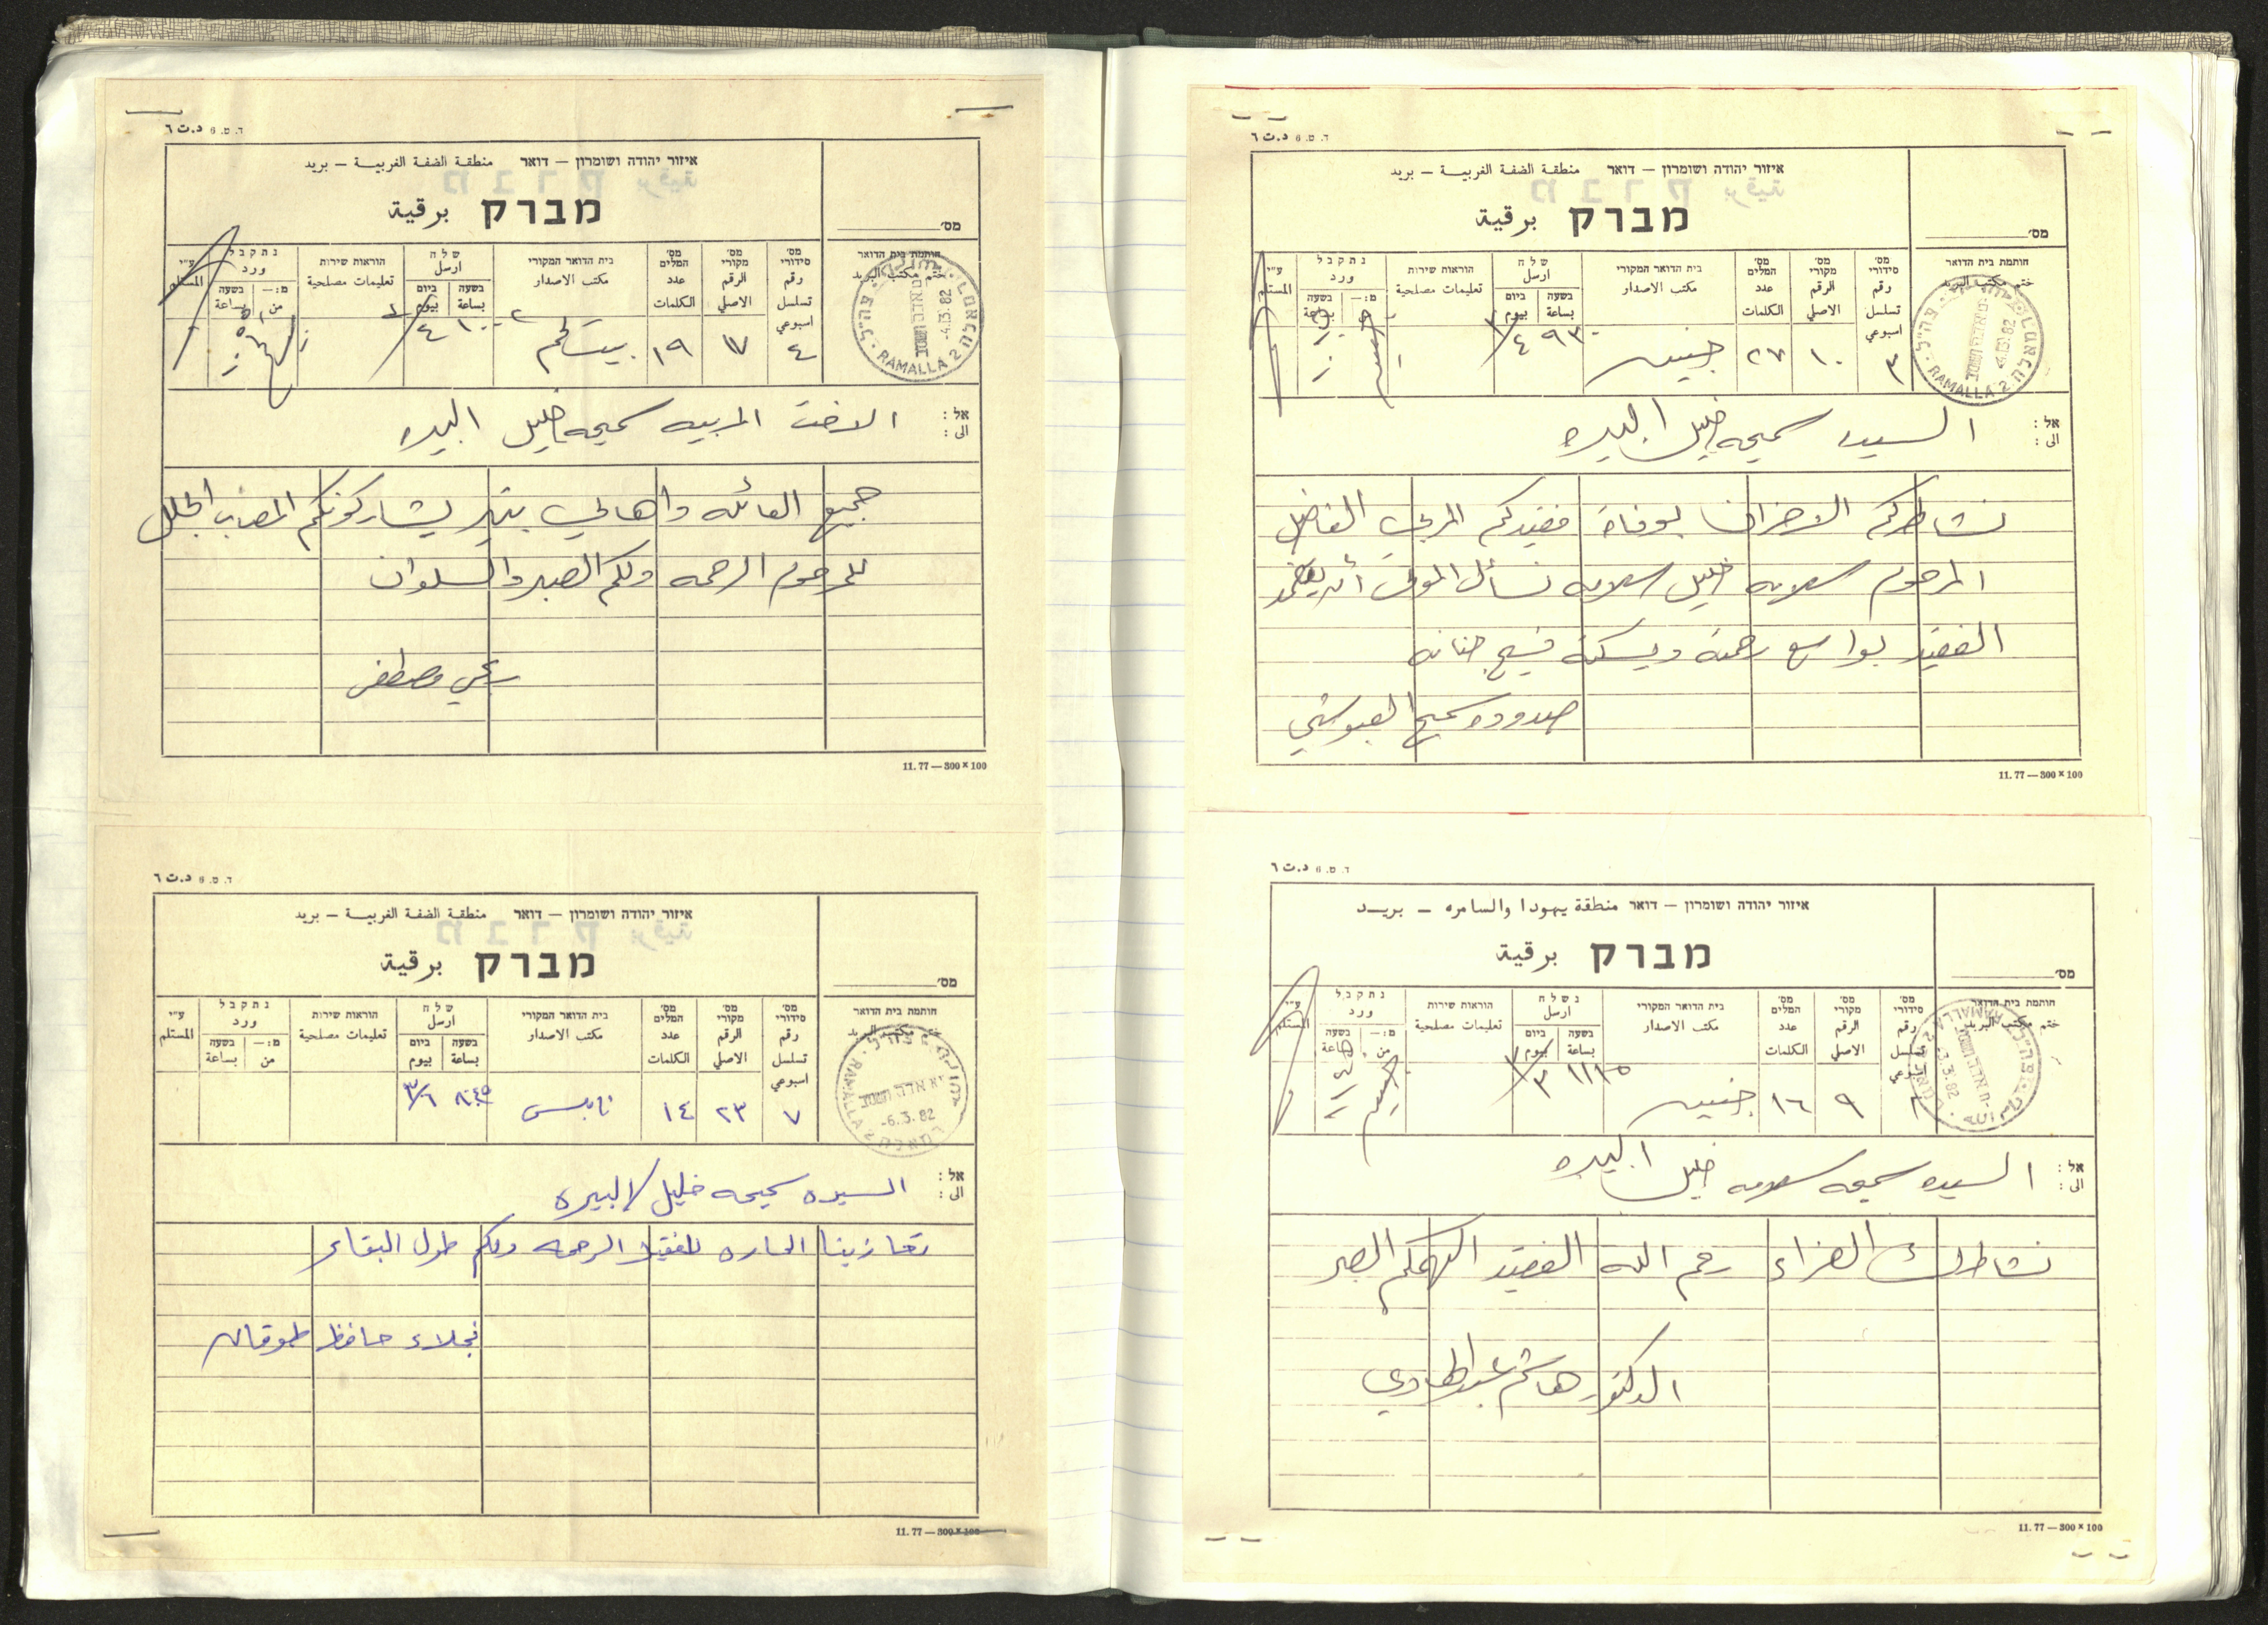 ד. ט. 6 د.ت ٦
איזור יהודה ושומרון – דואר منطقة الضفة الغربية – بريد
מברק برقية
מס'
חותמת בית הדואר
ختم مكتب البريد
RAMALLA 2
-4.3.82
מס' סידורי
رقم تسلسل اسبوعي
٤
מס' מקורי
الرقم الاصلي
١٧
מס' המלים
عدد الكلمات
١٩
בית הדואר המקורי
مكتب الاصدار
بيت لحم
שלח
ارسل
בשעה ביום
بساعة بيوم
הוראות שירות
تعليمات مصلحية
נתקבל
ورد
מ:– בשעה
من بساعة
ע"י
المستلم
אל :
الى :
الاخت المربيه سميحه خليل البيره
جميع العائله واهالي بتير يشاركونكم المصاب الجلل
للمرحوم الرحمه ولكم الصبر والسلوان
مصطفى
11. 77 — 300 × 100
ד. ט. 6 د.ت ٦
איזור יהודה ושומרון – דואר منطقة الضفة الغربية – بريد
מברק برقية
מס'
חותמת בית הדואר
ختم مكتب البريد
RAMALLA 2
-6.3.82
מס' סידורי
رقم تسلسل اسبوعي
٧
מס' מקורי
الرقم الاصلي
٢٣
מס' המלים
عدد الكلمات
١٤
בית הדואר המקורי
مكتب الاصدار
نابلس
שלח
ارسل
בשעה ביום
بساعة بيوم
٨٤٥ ٣/٦
הוראות שירות
تعليمات مصلحية
נתקבל
ورد
מ:– בשעה
من بساعة
ע"י
المستلم
אל :
الى :
السيده سميحه خليل / البيره
تعازينا الحاره للفقيد الرحمه ولكم طول البقاء
نجلاء حافظ طوقان
11. 77 — 300 × 100
ד. ט. 6 د.ت ٦
איזור יהודה ושומרון – דואר منطقة الضفة الغربية – بريد
מברק برقية
מס'
חותמת בית הדואר
ختم مكتب البريد
RAMALLA 2
-4.3.82
מס' סידורי
رقم تسلسل اسبوعي
٣
מס' מקורי
الرقم الاصلي
١٠
מס' המלים
عدد الكلمات
٢٧
בית הדואר המקורי
مكتب الاصدار
جنين
שלח
ارسل
בשעה ביום
بساعة بيوم
٩٣٠ ٣/٤
הוראות שירות
تعليمات مصلحية
נתקבל
ورد
מ:– בשעה
من بساعة
ע"י
المستلم
אל :
الى :
السيده سميحه خليل البيره
نشاطركم الاحزان بوفاة فقيدكم المربي الفاضل
المرحوم سلامه خليل سلامه نسأل المولى أن يتغمد
الفقيد بواسع رحمته ويسكنه فسيح جنانه
سميح العبوشي
11. 77 — 300 × 100
ד. ט. 6 د.ت ٦
איזור יהודה ושומרון – דואר منطقة يهودا والسامره – بريد
מברק برقية
מס'
חותמת בית הדואר
ختم مكتب البريد
RAMALLA 2
-3.3.82
מס' סידורי
رقم تسلسل اسبوعي
מס' מקורי
الرقم الاصلي
٩
מס' המלים
عدد الكلمات
١٦
בית הדואר המקורי
مكتب الاصدار
جنين
נשלח
ارسل
בשעה ביום
بساعة بيوم
٣/٣
הוראות שירות
تعليمات مصلحية
נתקבל
ورد
מ:– בשעה
من بساعة
ע"י
المستلم
אל :
الى :
السيده سميحه سلامه خليل البيره
نشاطرك العزاء رحم الله الفقيد الهمكم الصبر
الدكتور هاشم عبد الهادي
11. 77 — 300 × 100